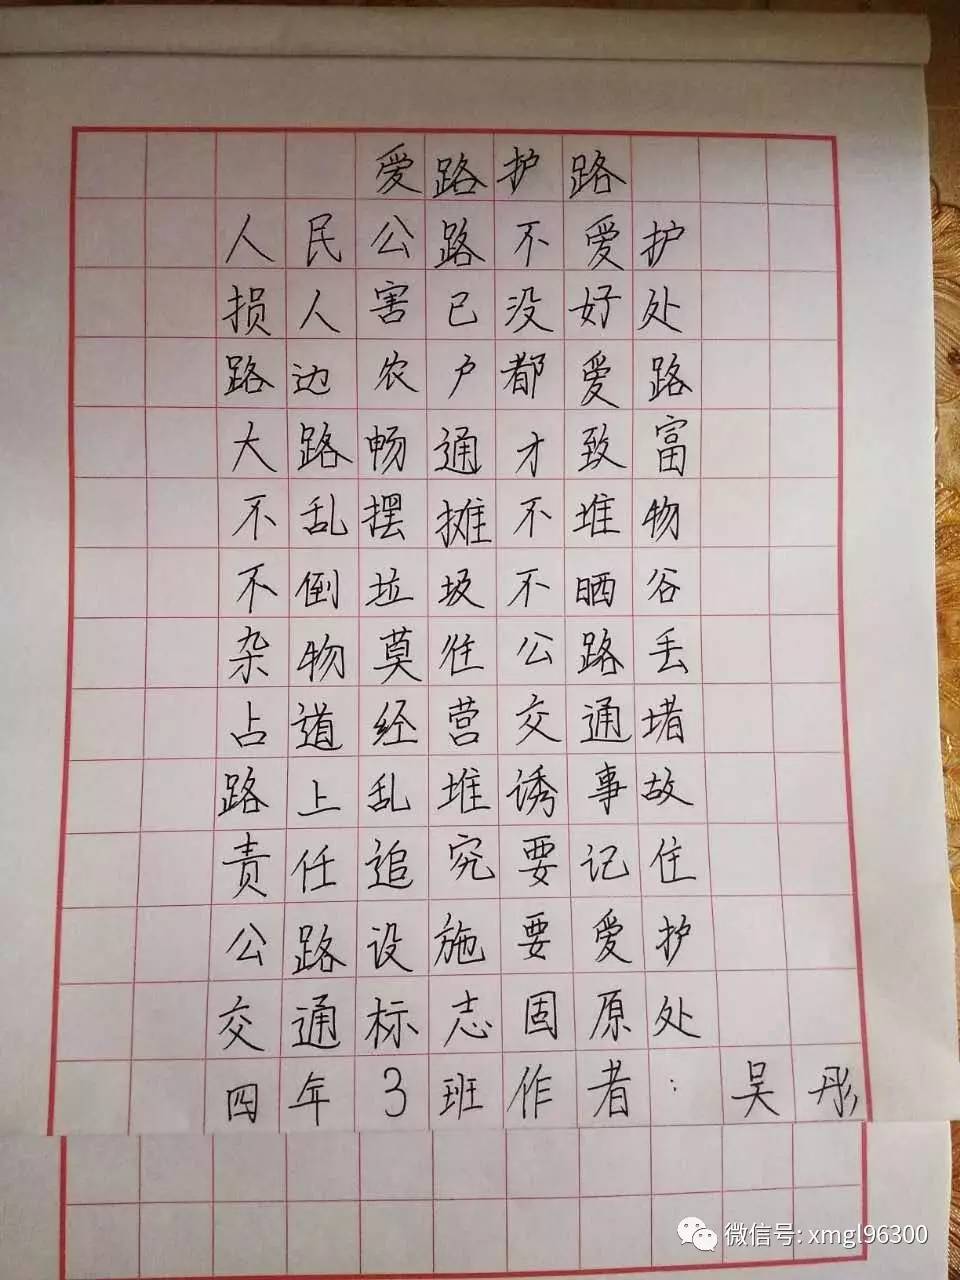 爱路护路
人民公路不爱护
损人害已没好处
路边农户都爱路
大路畅通才致富
不乱摆摊不堆物
不倒垃圾不晒谷
杂物莫往公路丢
占道经营交通堵
路上乱堆诱事故
责任追究要记住
公路设施要爱护
交通标志固原处
四年3班作者:吴彤
微信号: xmgl96300